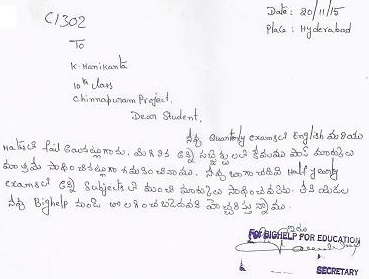 C1302
Date: 20/11/15
Place: Hyderabad
To
K. Manikanta
10th class
Chinnapuram Project.
Dear Student,
నీవు Quarterly examsలో English మరియు
Mathsలో fail అయినట్లుగాను, మిగిలిన అన్ని సబ్జెక్టులలో కేవలము పాస్ మార్కులు
మాత్రమే సాధించినట్లుగా గమనించినాము. నీవు రాబోయే Half yearly
examsలో అన్ని Subjectsలో మంచి మార్కులు సాధించవలెను. లేని యెడల
నీవు Bighelp నుండి తొలగించబడెదవని హెచ్చరిస్తున్నాము.
ఇట్లు
For BIGHELP FOR EDUCATION
SECRETARY